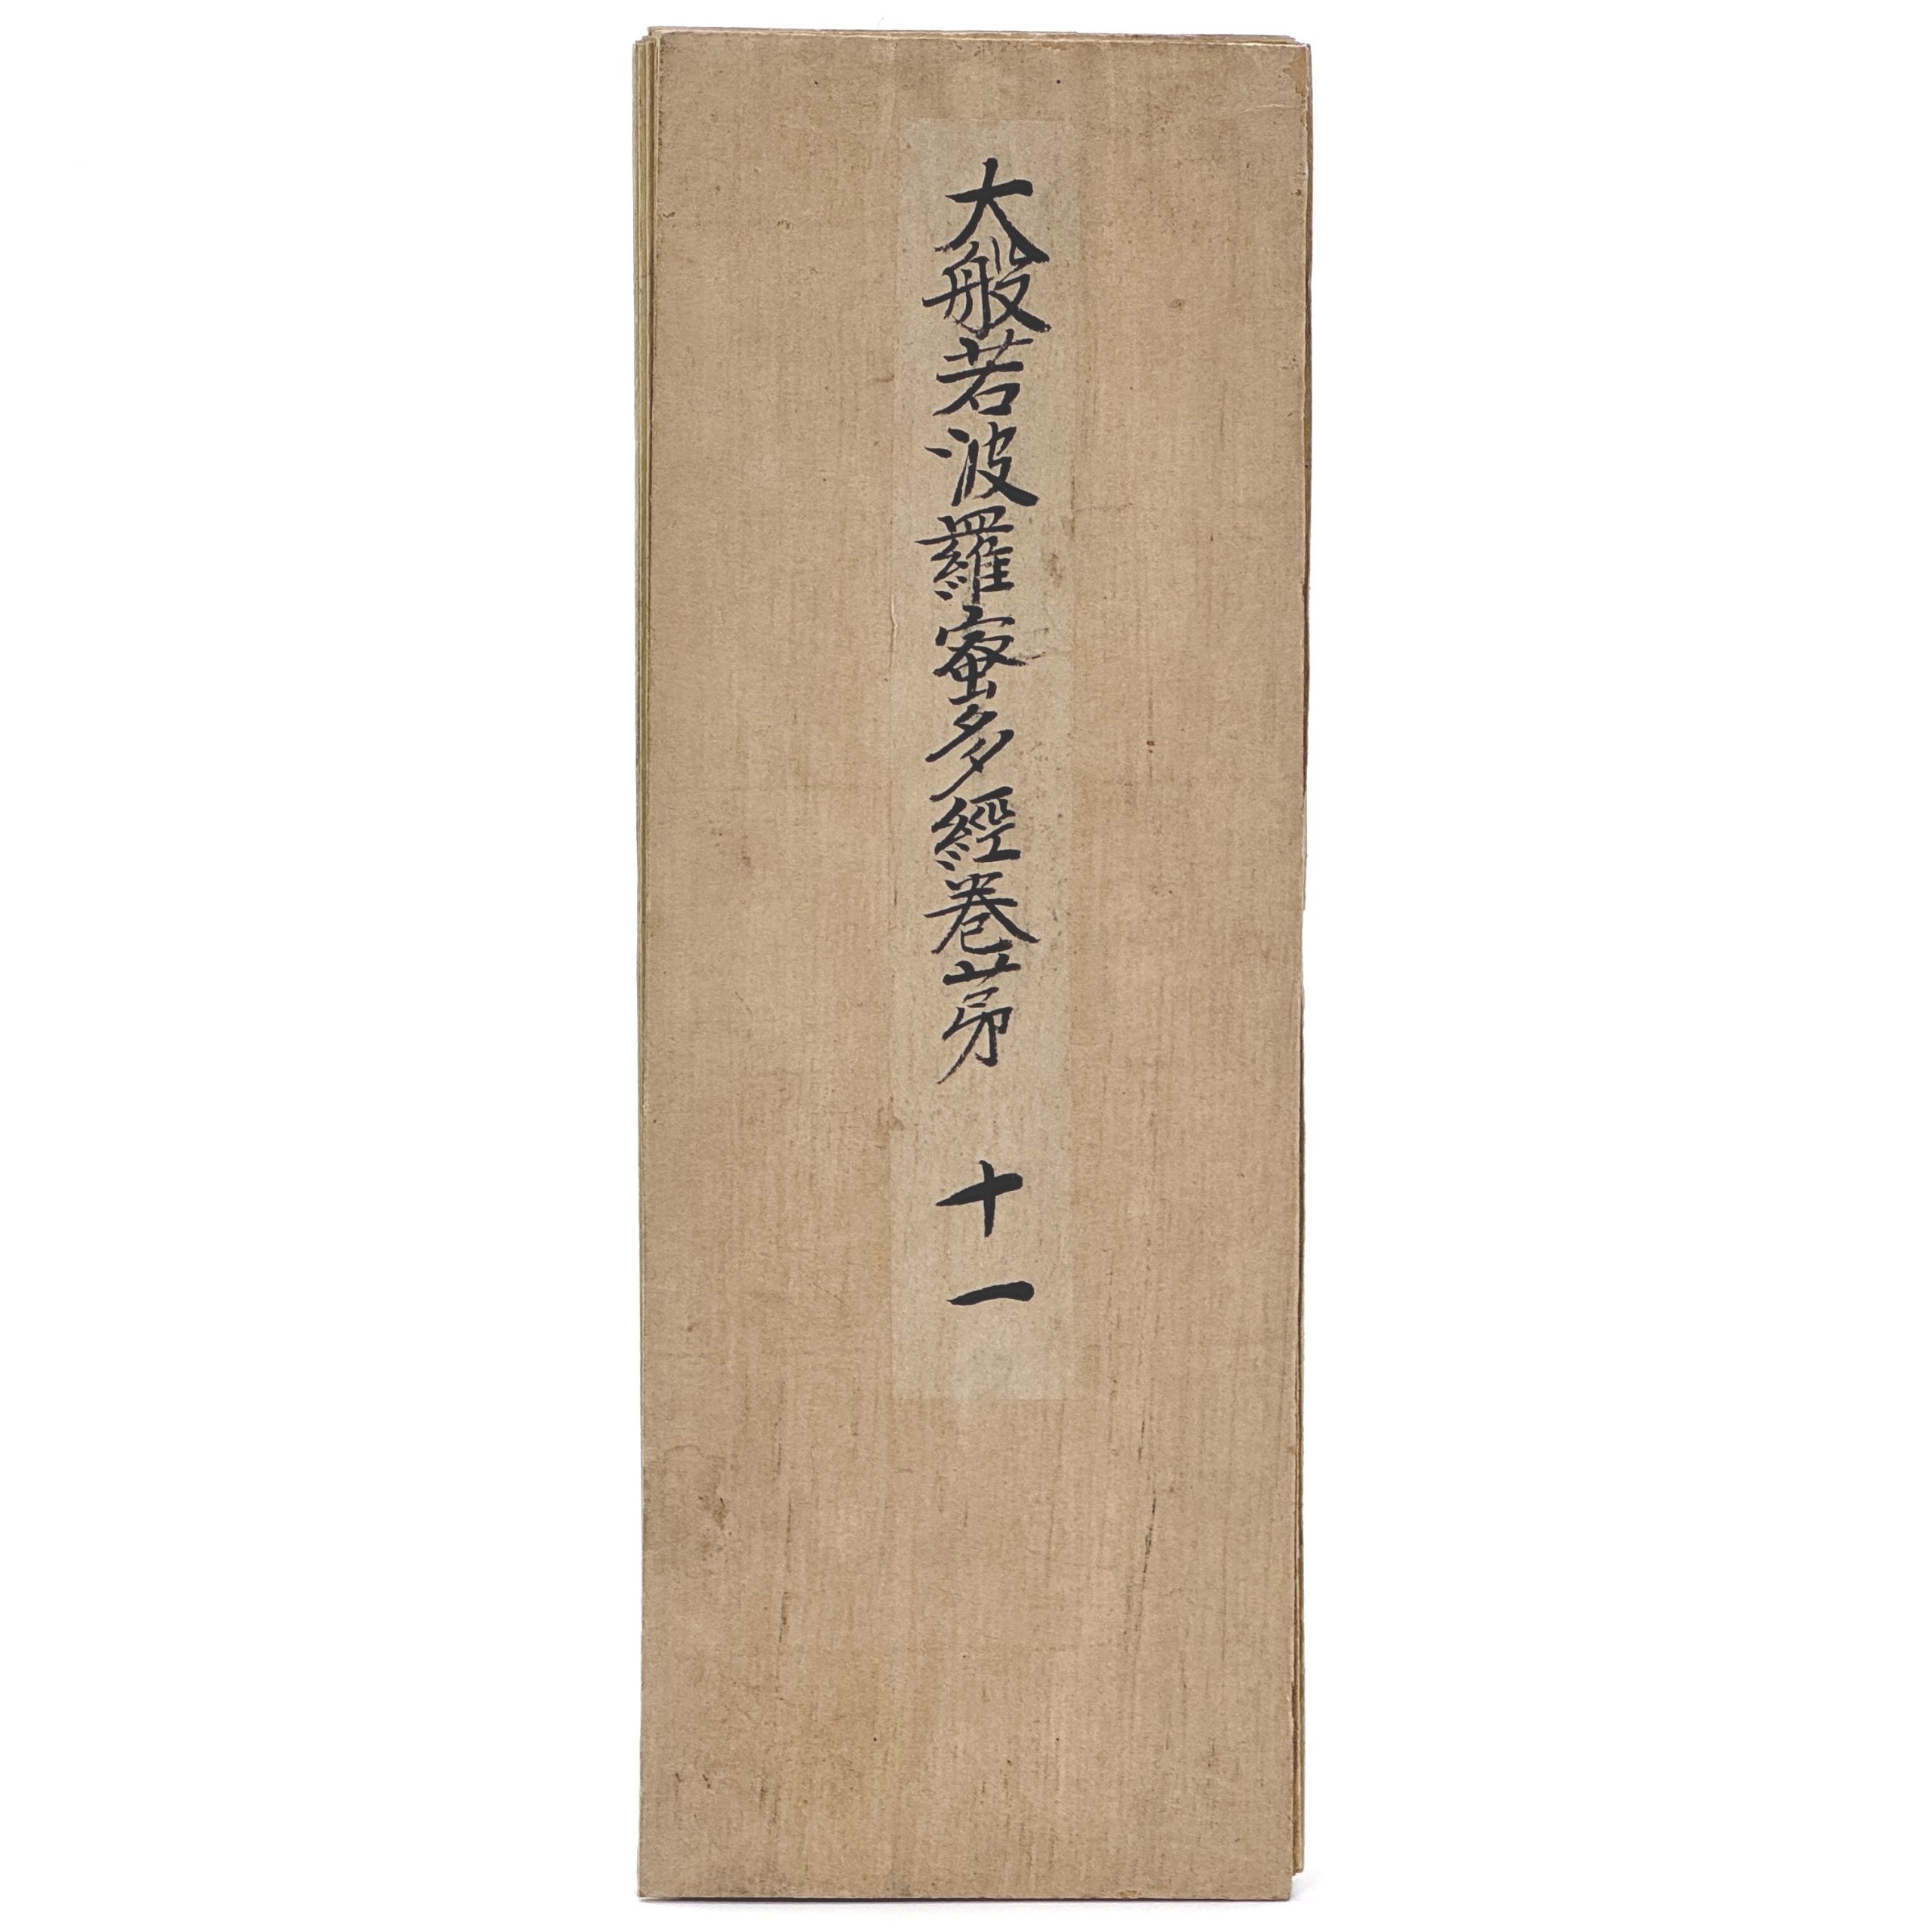 大般若波羅蜜多經卷苐 十一